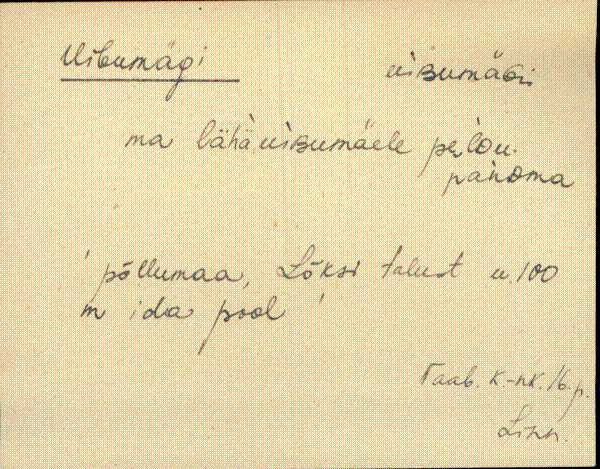 Uibumägi uiʙumäɢi
ma lähä uiʙumäele pe̮lʙu
panᴅma
' põllumaa, Lõksi talust u. 100
m ida pool '
Taab. k-nk. 16. p.
Linn.